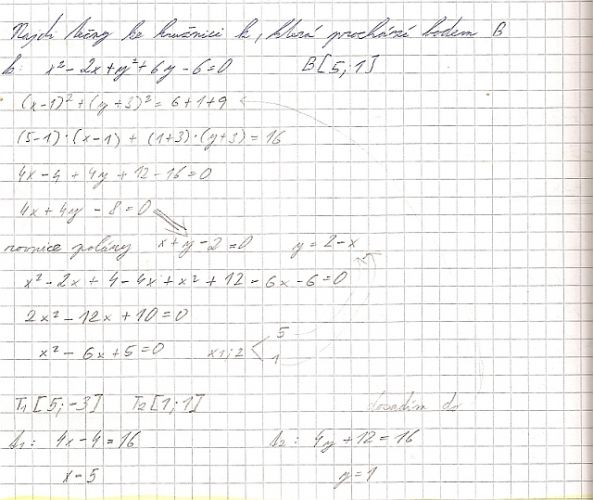 Najdi tečny ke kružnici k, která prochází bodem B
k: x² - 2x + y² + 6y - 6 = 0 B[5;1]
(x-1)² + (y+3)² = 6+1+9
(5-1)·(x-1) + (1+3)·(y+3) = 16
4x - 4 + 4y + 12 - 16 = 0
4x + 4y - 8 = 0
rovnice poláry x+y-2=0 y=2-x
x² - 2x + 4 - 4x + x² + 12 - 6x - 6 = 0
2x² - 12x + 10 = 0
x² - 6x + 5 = 0 x1;2 < 5
1
T1[5;-3] T2[1;1] dosadím do
t1: 4x - 4 = 16 t2: 4y + 12 = 16
x - 5 y = 1